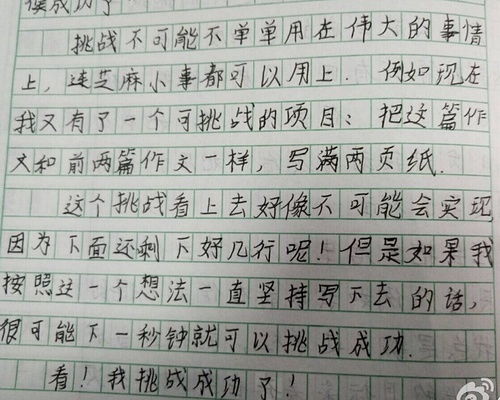 候成功了
挑战不可能不单单用在伟大的事情
上，连芝麻小事都可以用上．例如现在
我又有了一个可挑战的项目：把这篇作
文和前两篇作文一样，写满两页纸．
这个挑战看上去好像不可能会实现
因为下面还剩下好几行呢！但是如果我
按照这一个想法一直坚持写下去的话，
很可能下一秒钟就可以挑战成功．
看！我挑战成功了！